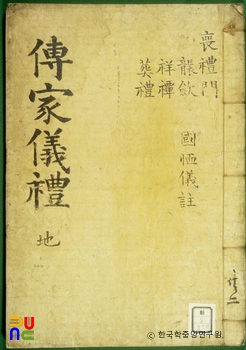 傳家儀禮 地
喪禮門
襲斂 國恤儀註
祥禫
葬禮
한국학중앙연구원